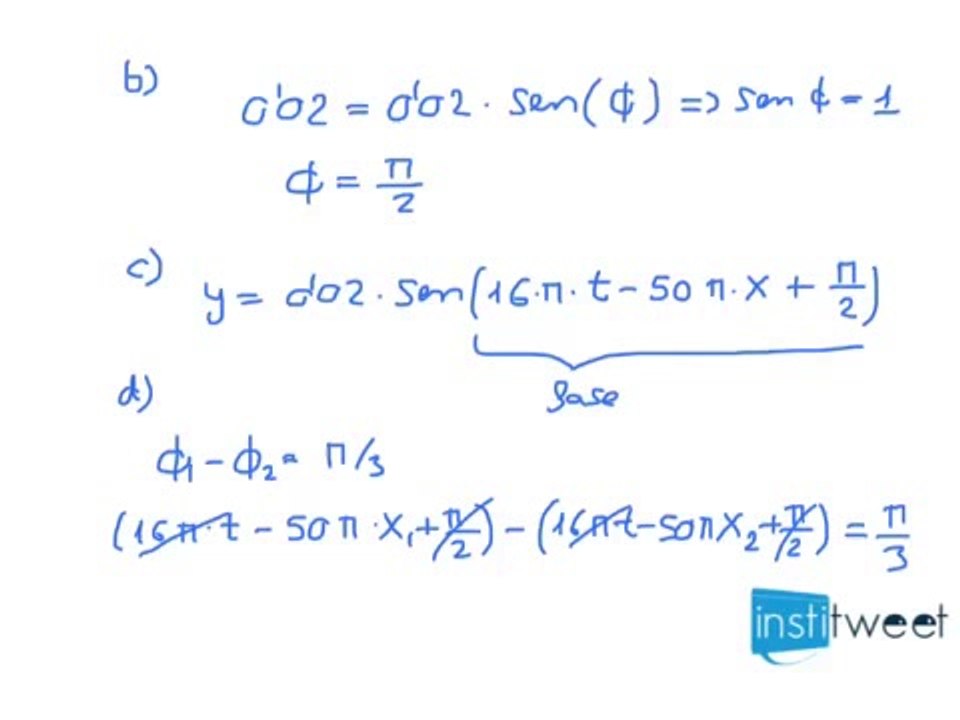 b)
0'02 = 0'02 · sen(ϕ) => sen ϕ = 1
ϕ = π/2
c)
y = 0'02 · sen(16·π·t - 50π·x + π/2)
fase
d)
ϕ₁ - ϕ₂ = π/3
(16π·t - 50π·x₁ + π/2) - (16πt - 50πx₂ + π/2) = π/3
institweet